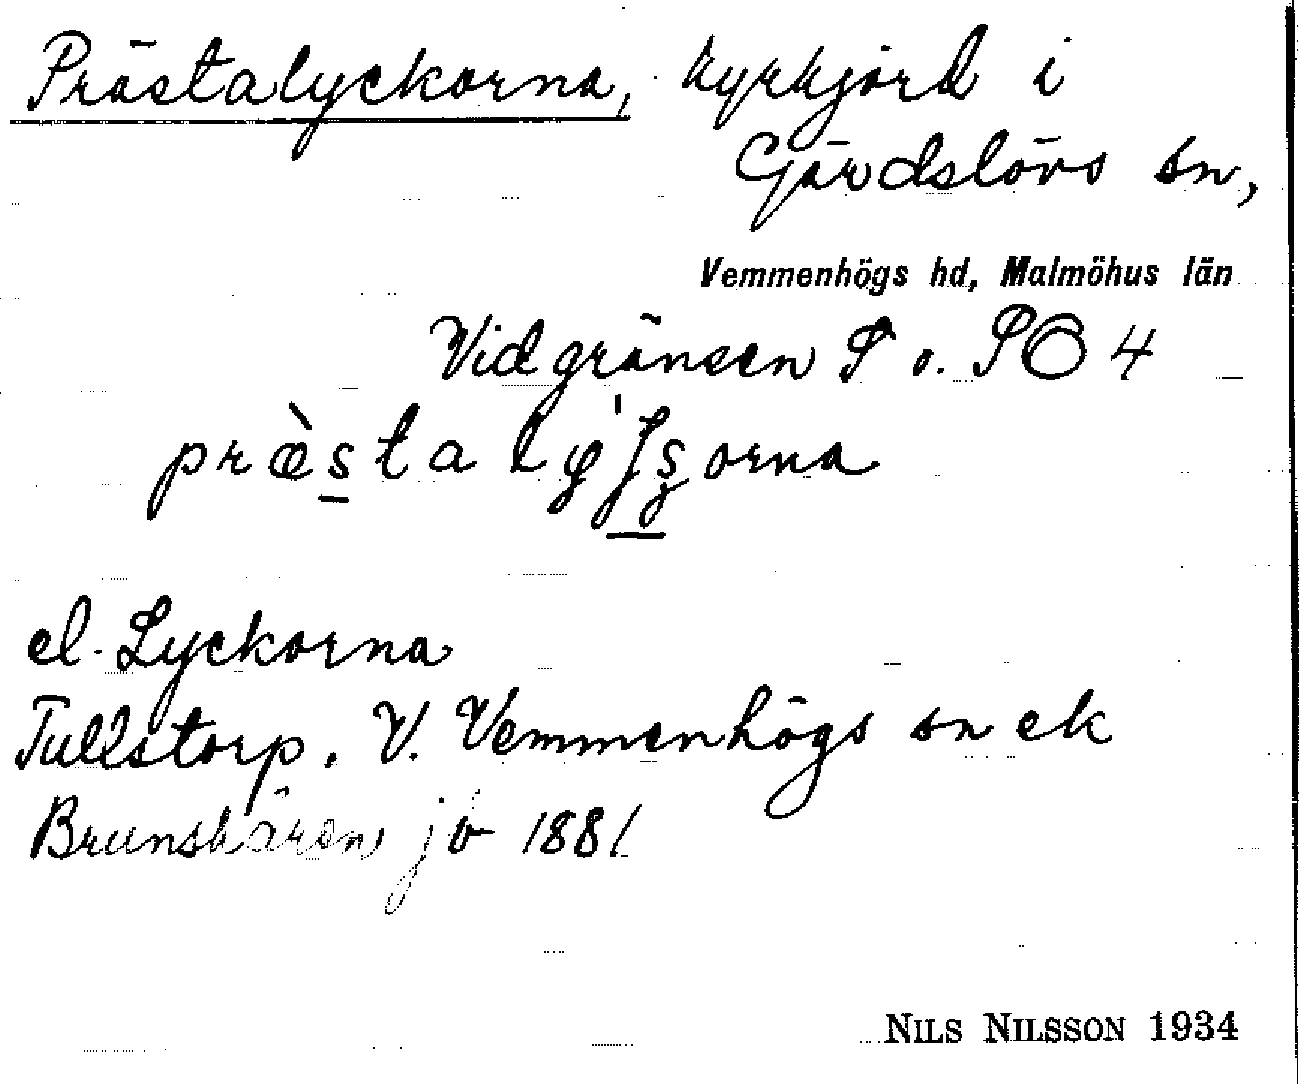 Prästalyckorna, kyrkjord i
Gärdslövs sn,
Vemmenhögs hd, Malmöhus län
Vid gränsen S o. SO 4
el. Lyckorna
Tullstorp, V. Vemmenhögs sn ek
Brunskären jb 1881
NILS NILSSON 1934